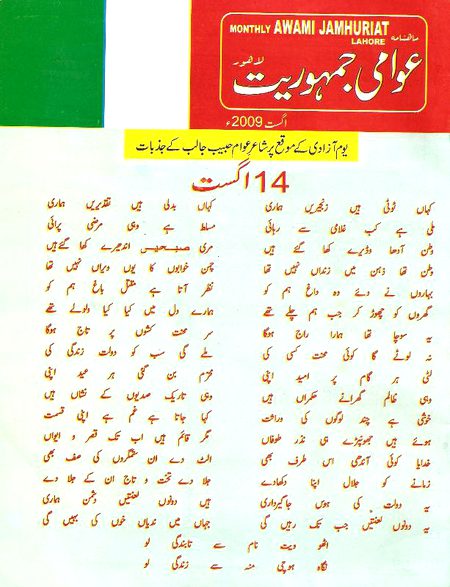 MONTHLY AWAMI JAMHURIAT
LAHORE
ماہنامہ
عوامی جمہوریت
لاہور
اگست 2009ء
یوم آزادی کے موقع پر شاعر عوام حبیب جالب کے جذبات
14 اگست
کہاں ٹوٹی ہیں زنجیریں ہماری کہاں بدلی ہیں تقدیریں ہماری
ملی ہے کب غلامی سے رہائی مسلط ہے وہی مرضی پرائی
وطن آدھا وڈیرے کھا گئے ہیں مری صبحیں اندھیرے کھا گئے ہیں
وطن تھا ذہن میں زنداں نہیں تھا چمن خوابوں کا یوں ویراں نہیں تھا
بہاروں نے دئے وہ داغ ہم کو نظر آتا ہے مقتل باغ ہم کو
گھروں کو چھوڑ کر جب ہم چلے تھے ہمارے دل میں کیا کیا ولولے تھے
یہ سوچا تھا ہمارا راج ہوگا سر محنت کشوں پر تاج ہوگا
نہ لوٹے گا کوئی محنت کسی کی ملے گی سب کو دولت زندگی کی
لٹی ہر گام پر امید اپنی محرم بن گئی ہر عید اپنی
وہی ظالم گھرانے حکمراں ہیں وہی تاریک صدیوں کے نشاں ہیں
خوشی ہے چند لوگوں کی وراثت کہا جاتا ہے غم ہے اپنی قسمت
ہوئے ہیں جھونپڑے ہی نذر طوفاں مگر قائم ہیں اب تک قصر و ایواں
خدایا کوئی آندھی اس طرف بھی الٹ دے ان ستمگروں کی صف بھی
زمانے کو جلال اپنا دکھادے جلا دے تخت و تاج ان کے جلا دے
یہ دولت کی ہوس جاگیرداری ہیں دونوں لعنتیں دشمن ہماری
یہ دونوں لعنتیں جب تک رہیں گی جہاں میں ندیاں خوں کی بہیں گی
اٹھو ویت نام سے تابندگی لو
نگاہ ہوچی منہ سے زندگی لو